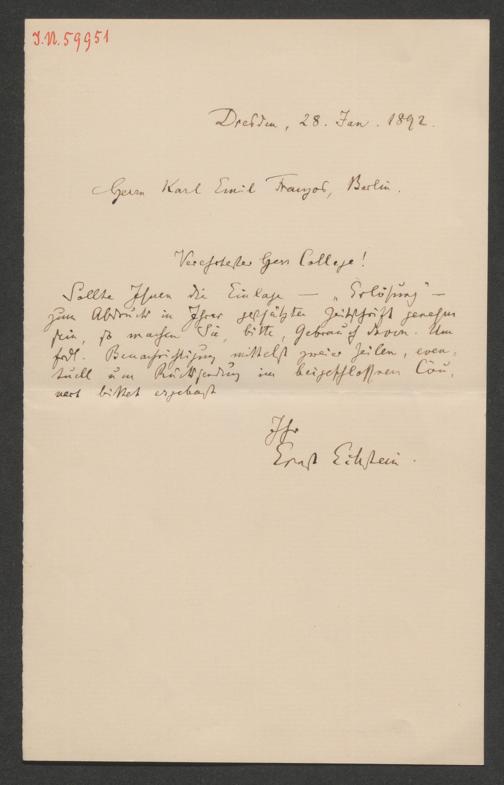 J.N. 59951
Dresden, 28. Jan. 1892.
Herrn Karl Emil Franzos, Berlin.
Verehrtester Herr College!
Sollte Ihnen die Einlage — „Erlösung" —
zum Abdruck in Ihrer geschätzten Zeitschrift genehm
sein, so machen Sie, bitte, Gebrauch davon. Um
frdl. Benachrichtigung mittelst zweier Zeilen, even-
tuell um Rücksendung im beigeschlossenen Cou-
vert bittet ergebenst
Ihr
Ernst Eckstein.